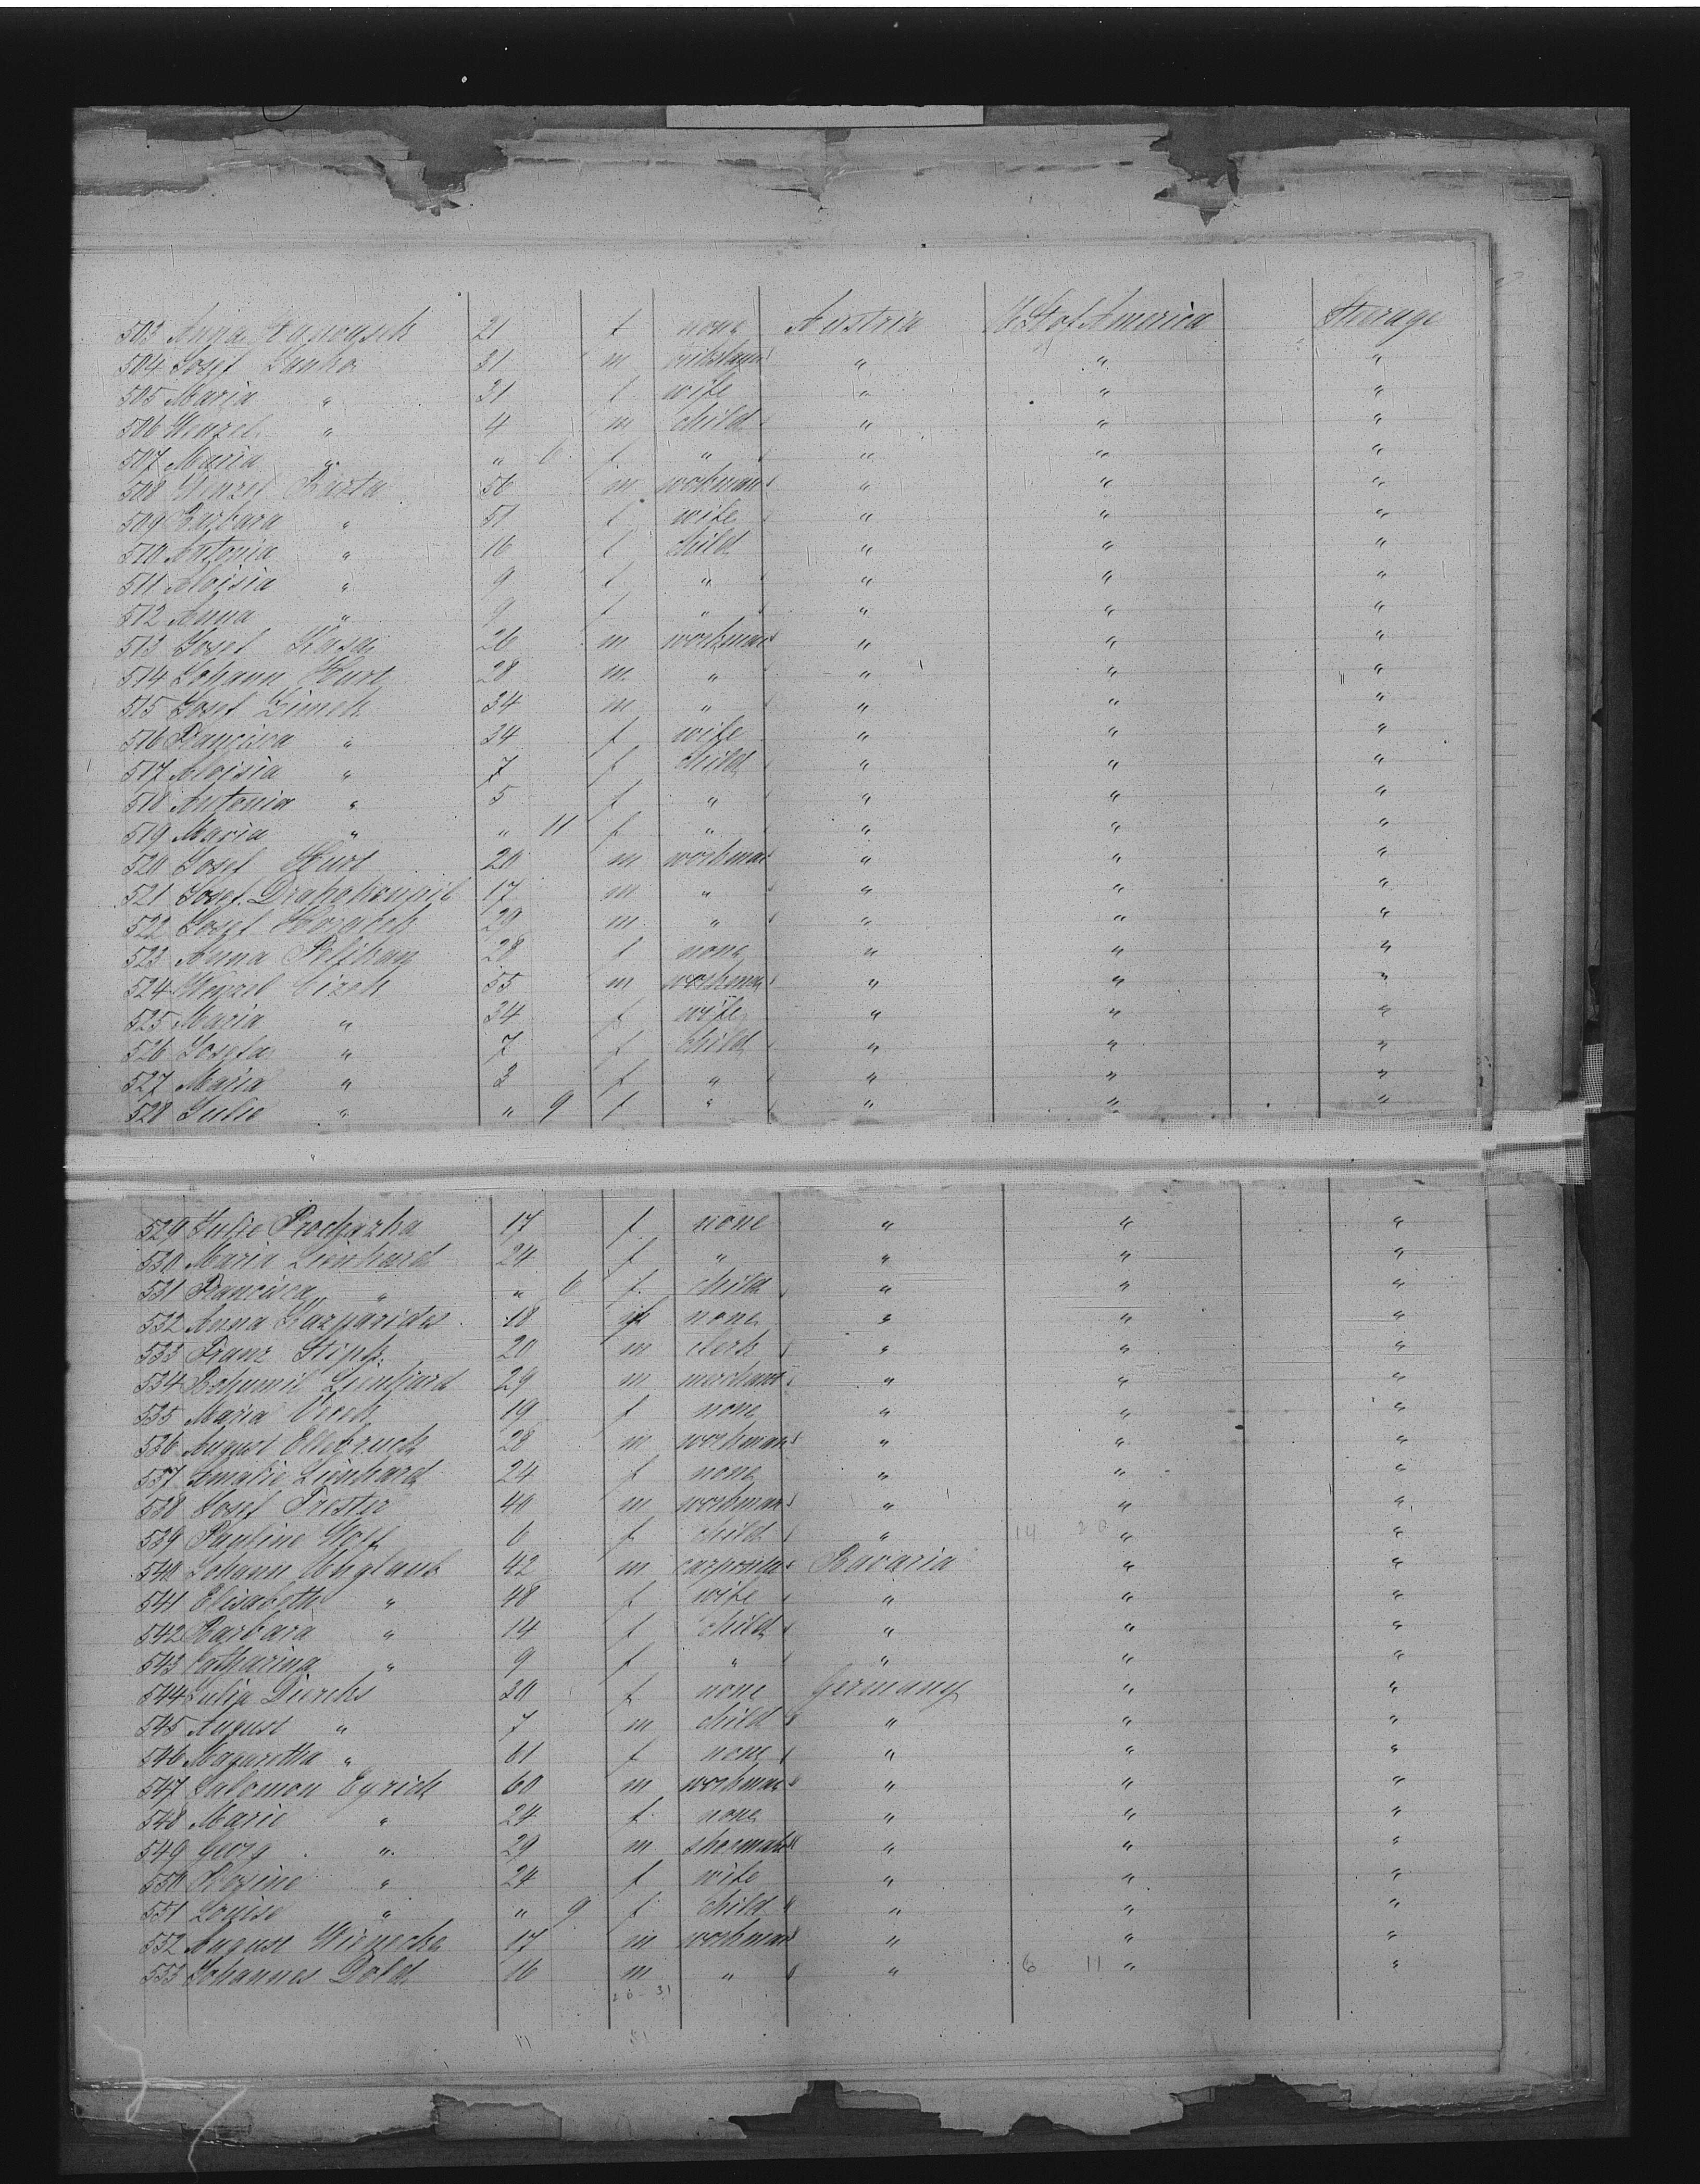 503 Anna 21 f none Austria U St of America Sterage
504 Josef Zunka 31 m " " "
505 Maria " 31 f wife " " "
506 Wenzel " 4 m child " " "
507 Maria " " 6 f " " " "
508 Wenzel Barta 56 m workman " " "
509 Barbara " 51 f wife " " "
510 Antonia " 16 f child " " "
511 Aloisia " 9 f " " " "
512 Anna " 9 f " " " "
513 Josef 26 m workman " " "
514 Johann Kurt 28 m " " " "
515 Josef Zimek 34 m " " " "
516 Francisca " 34 f wife " " "
517 Aloisia " 7 f child " " "
518 Antonia " 5 f " " " "
519 Maria " " 11 f " " " "
520 Josef Kurt 20 m workman " " "
521 Josef Drahokoupil 17 m " " " "
522 Josef 29 m " " " "
523 Anna 28 f none " " "
524 Wenzel Cizek 55 m workman " " "
525 Maria " 34 f wife " " "
526 Josefa " 7 f child " " "
527 Maria " 3 f " " " "
528 Julie " " 9 f " " " "
529 Julie Prochazka 17 f none " " "
530 Maria Lienhard 24 f " " " "
531 Francisca " " 6 f child " " "
532 Anna 18 f none " " "
533 Franz 20 m clerk " " "
534 Bohumil Lienhard 29 m merchant " " "
535 Maria 19 f none " " "
536 August Ellebruch 28 m workman " " "
537 Amalie Lienhard 24 f none " " "
538 Josef Trester 40 m workman " " "
539 Pauline Wolf 6 f child " 14 20 " "
540 Johann Unglaub 42 m carpenter Bavaria " "
541 Elisabeth " 48 f wife " " "
542 Barbara " 14 f child " " "
543 Catharina " 9 f " " " "
544 Julia Dierchs 30 f none Germany " "
545 August " 7 m child " " "
546 Magaretha " 61 f none " " "
547 Salomon Eyrich 60 m workman " " "
548 Marie " 24 f none " " "
549 Georg " 29 m shoemaker " " "
550 Rosine " 24 f wife " " "
551 Louise " " 9 f child " " "
552 August Wienecke 17 m workman " " "
553 Johannes Dold 16 m " " 6 11 " "